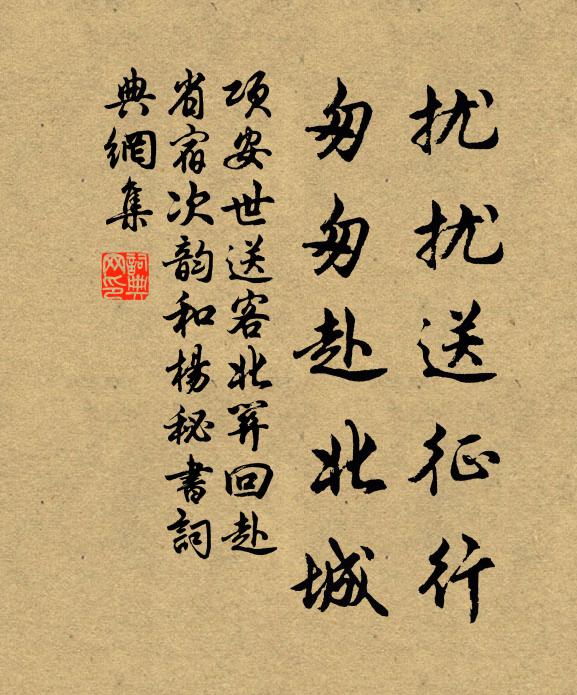 扰扰送征行
匆匆赴北城
项安世送客北关回赴
省宿次韵和杨秘书词
典網集
詞典網印